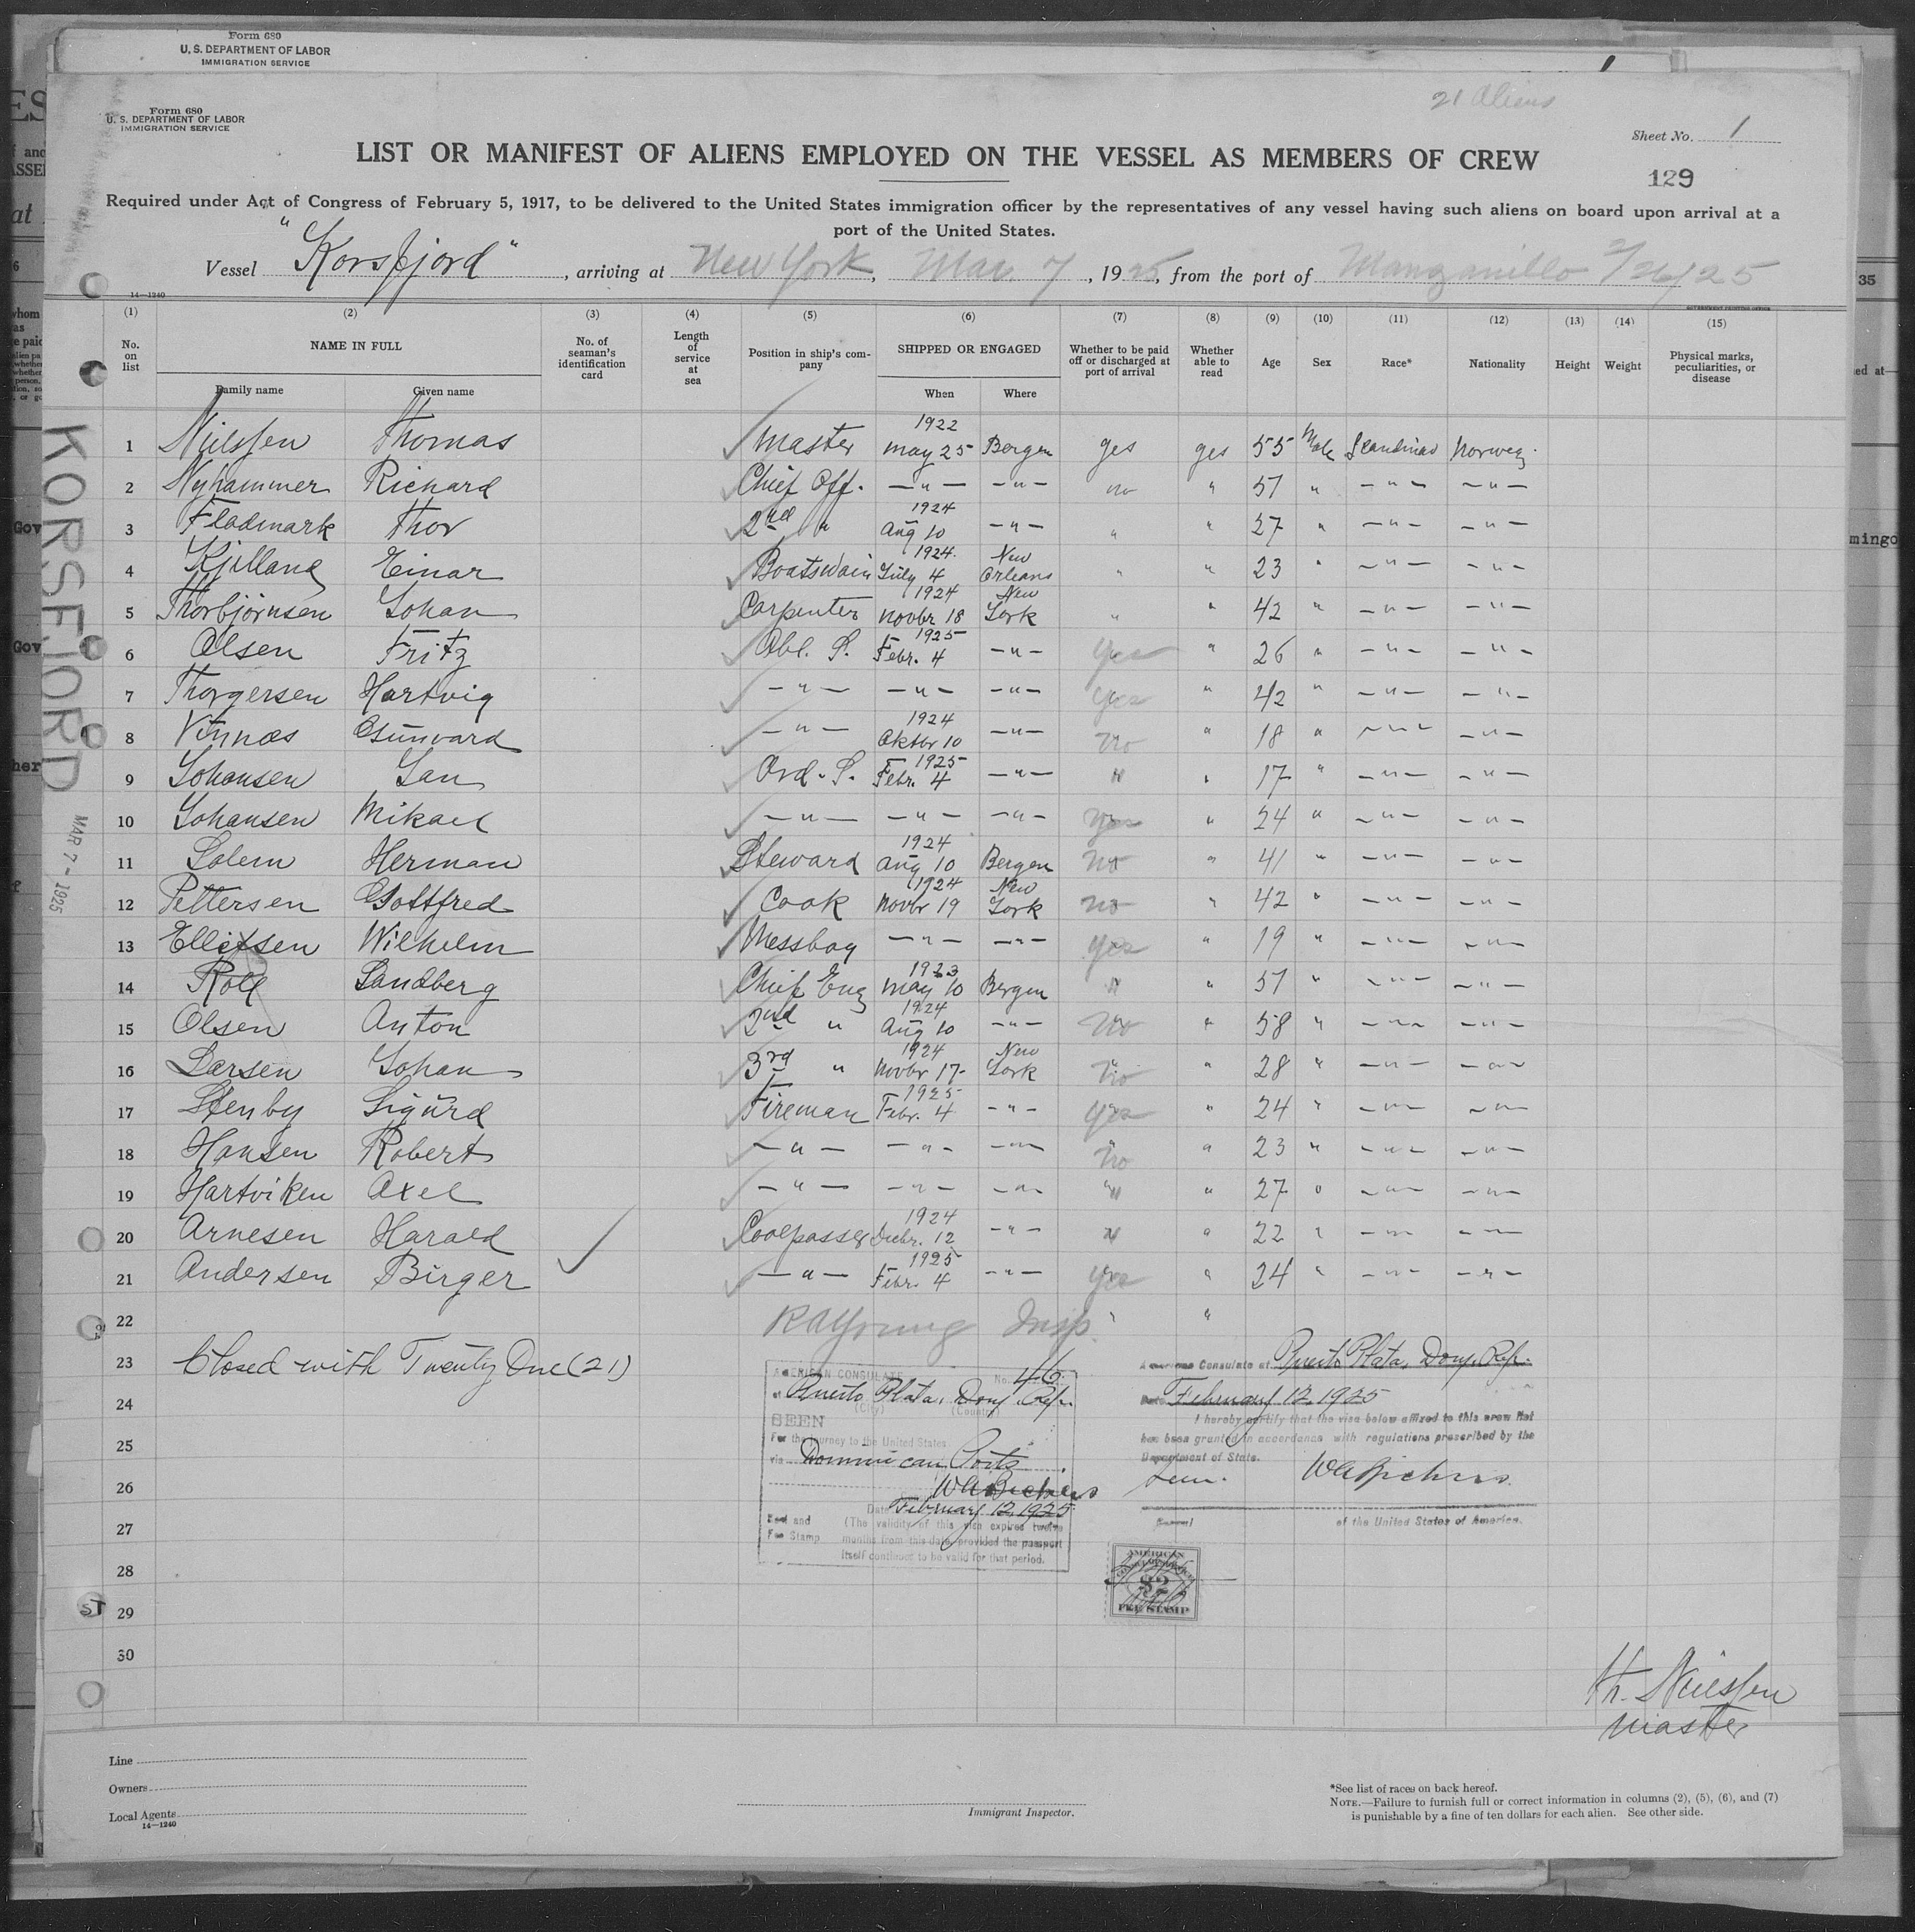 Form 680
U. S. DEPARTMENT OF LABOR
IMMIGRATION SERVICE
21 Aliens
Form 680
U. S. DEPARTMENT OF LABOR
IMMIGRATION SERVICE
Sheet No. 1
LIST OR MANIFEST OF ALIENS EMPLOYED ON THE VESSEL AS MEMBERS OF CREW
129
Required under Act of Congress of February 5, 1917, to be delivered to the United States immigration officer by the representatives of any vessel having such aliens on board upon arrival at a
port of the United States.
Vessel "Korsfjord", arriving at New York, Mar. 7, 1925, from the port of Manzanillo 2/26/25
14—1240
GOVERNMENT PRINTING OFFICE
(1) (2) (3) (4) (5) (6) (7) (8) (9) (10) (11) (12) (13) (14) (15)
No. on list NAME IN FULL No. of seaman's identification card Length of service at sea Position in ship's company SHIPPED OR ENGAGED Whether to be paid off or discharged at port of arrival Whether able to read Age Sex Race* Nationality Height Weight Physical marks, peculiarities, or disease
Family name Given name When Where
1 Nielssen Thomas Master 1922 May 25 Bergen yes yes 55 Male Scandinav Norweg.
2 Nyhammer Richard Chief Off. —"— —"— no " 51 " —"— —"—
3 Fladmark Thor 2nd " 1924 Aug 10 —"— " " 27 " —"— —"—
4 Kjilland Einar Boatswain 1924 July 4 New Orleans " " 23 " —"— —"—
5 Thorbjørnsen Johan Carpenter 1924 Novbr 18 New York " " 42 " —"— —"—
6 Olsen Fritz Abl. S. 1925 Febr. 4 —"— yes " 26 " —"— —"—
7 Thorgersen Hartvig —"— —"— —"— yes " 42 " —"— —"—
8 Vinnæs Gunvard —"— 1924 Oktbr 10 —"— no " 18 " —"— —"—
9 Johansen Jan Ord. S. 1925 Febr. 4 —"— " " 17 " —"— —"—
10 Johansen Mikael —"— —"— —"— yes " 24 " —"— —"—
11 Solem Herman Steward 1924 Aug 10 Bergen no " 41 " —"— —"—
12 Pettersen Gottfred Cook 1924 Novbr 19 New York no " 42 " —"— —"—
13 Ellefsen Wilhelm Messboy —"— —"— yes " 19 " —"— —"—
14 Roll Sandberg Chief Eng 1923 May 10 Bergen " " 51 " —"— —"—
15 Olsen Anton 2nd " 1924 Aug 10 —"— no " 58 " —"— —"—
16 Larsen Johan 3rd " 1924 Novbr 17 New York no " 28 " —"— —"—
17 Stenby Sigurd Fireman 1925 Febr. 4 —"— yes " 24 " —"— —"—
18 Hansen Robert —"— —"— —"— no " 23 " —"— —"—
19 Hartviken Axel —"— —"— —"— " " 27 " —"— —"—
20 Arnesen Harald Coolpasser 1924 Decbr. 12 —"— " " 22 " —"— —"—
21 Andersen Birger —"— 1925 Febr. 4 —"— yes " 24 " —"— —"—
22 RAYoung Insp. "
23 Closed with Twenty One (21)
24
25
26
27
28
29
30
AMERICAN CONSULATE No. 46
at Puerto Plata, Dom. Rep.
(City) (Country)
SEEN
For the journey to the United States
via Dominican Ports.
W A Bickers
Date February 12, 1925
Feed and Fee Stamp
(The validity of this visa expires twelve
months from this date, provided the passport
itself continues to be valid for that period.
American Consulate at Puerto Plata, Dom. Rep.
Date February 12, 1925
I hereby certify that the visa below affixed to this crew list
has been granted in accordance with regulations prescribed by the
Department of State.
W A Bickers
(Seal)
of the United States of America.
AMERICAN
$2
FEE STAMP
KORSFJORD
MAR 7 - 1925
ST
Th. Nielssen
Master
Line
Owners
Local Agents
14—1240
Immigrant Inspector.
*See list of races on back hereof.
NOTE.—Failure to furnish full or correct information in columns (2), (5), (6), and (7)
is punishable by a fine of ten dollars for each alien. See other side.